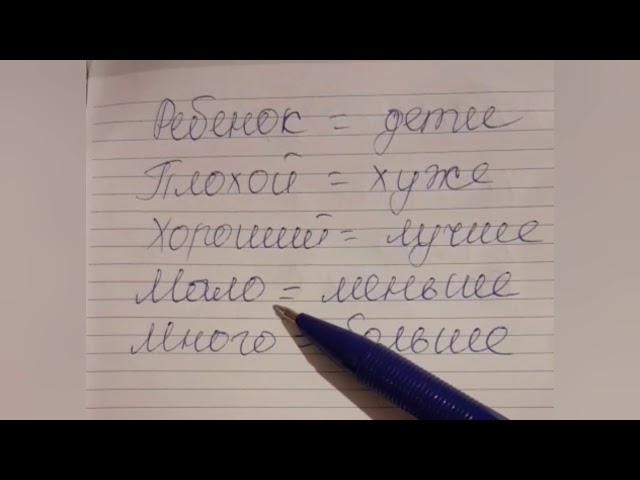 Ребенок = дети
Плохой = хуже
Хороший = лучше
Мало = меньше
Много = больше